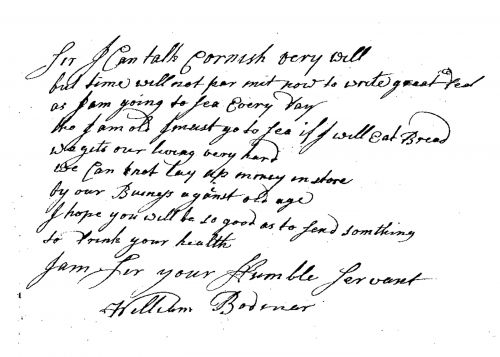 Sir I Can talk Cornish very will
but time will not par mit now to write great deal
as I am going to sea Every Day
tho I am old I must go to sea if I will Eat Bread
we gits our living very hard
we Can not lay up money in store
by our Busnegs against old age
I hope you will be so good as to send somthing
to Drink your health
I am Sir your Humble Servant
William Bodener